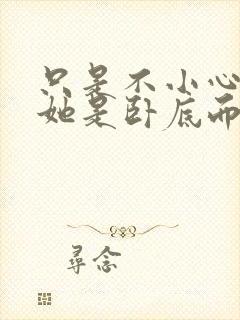 只是不小心
她是卧底而
寻念